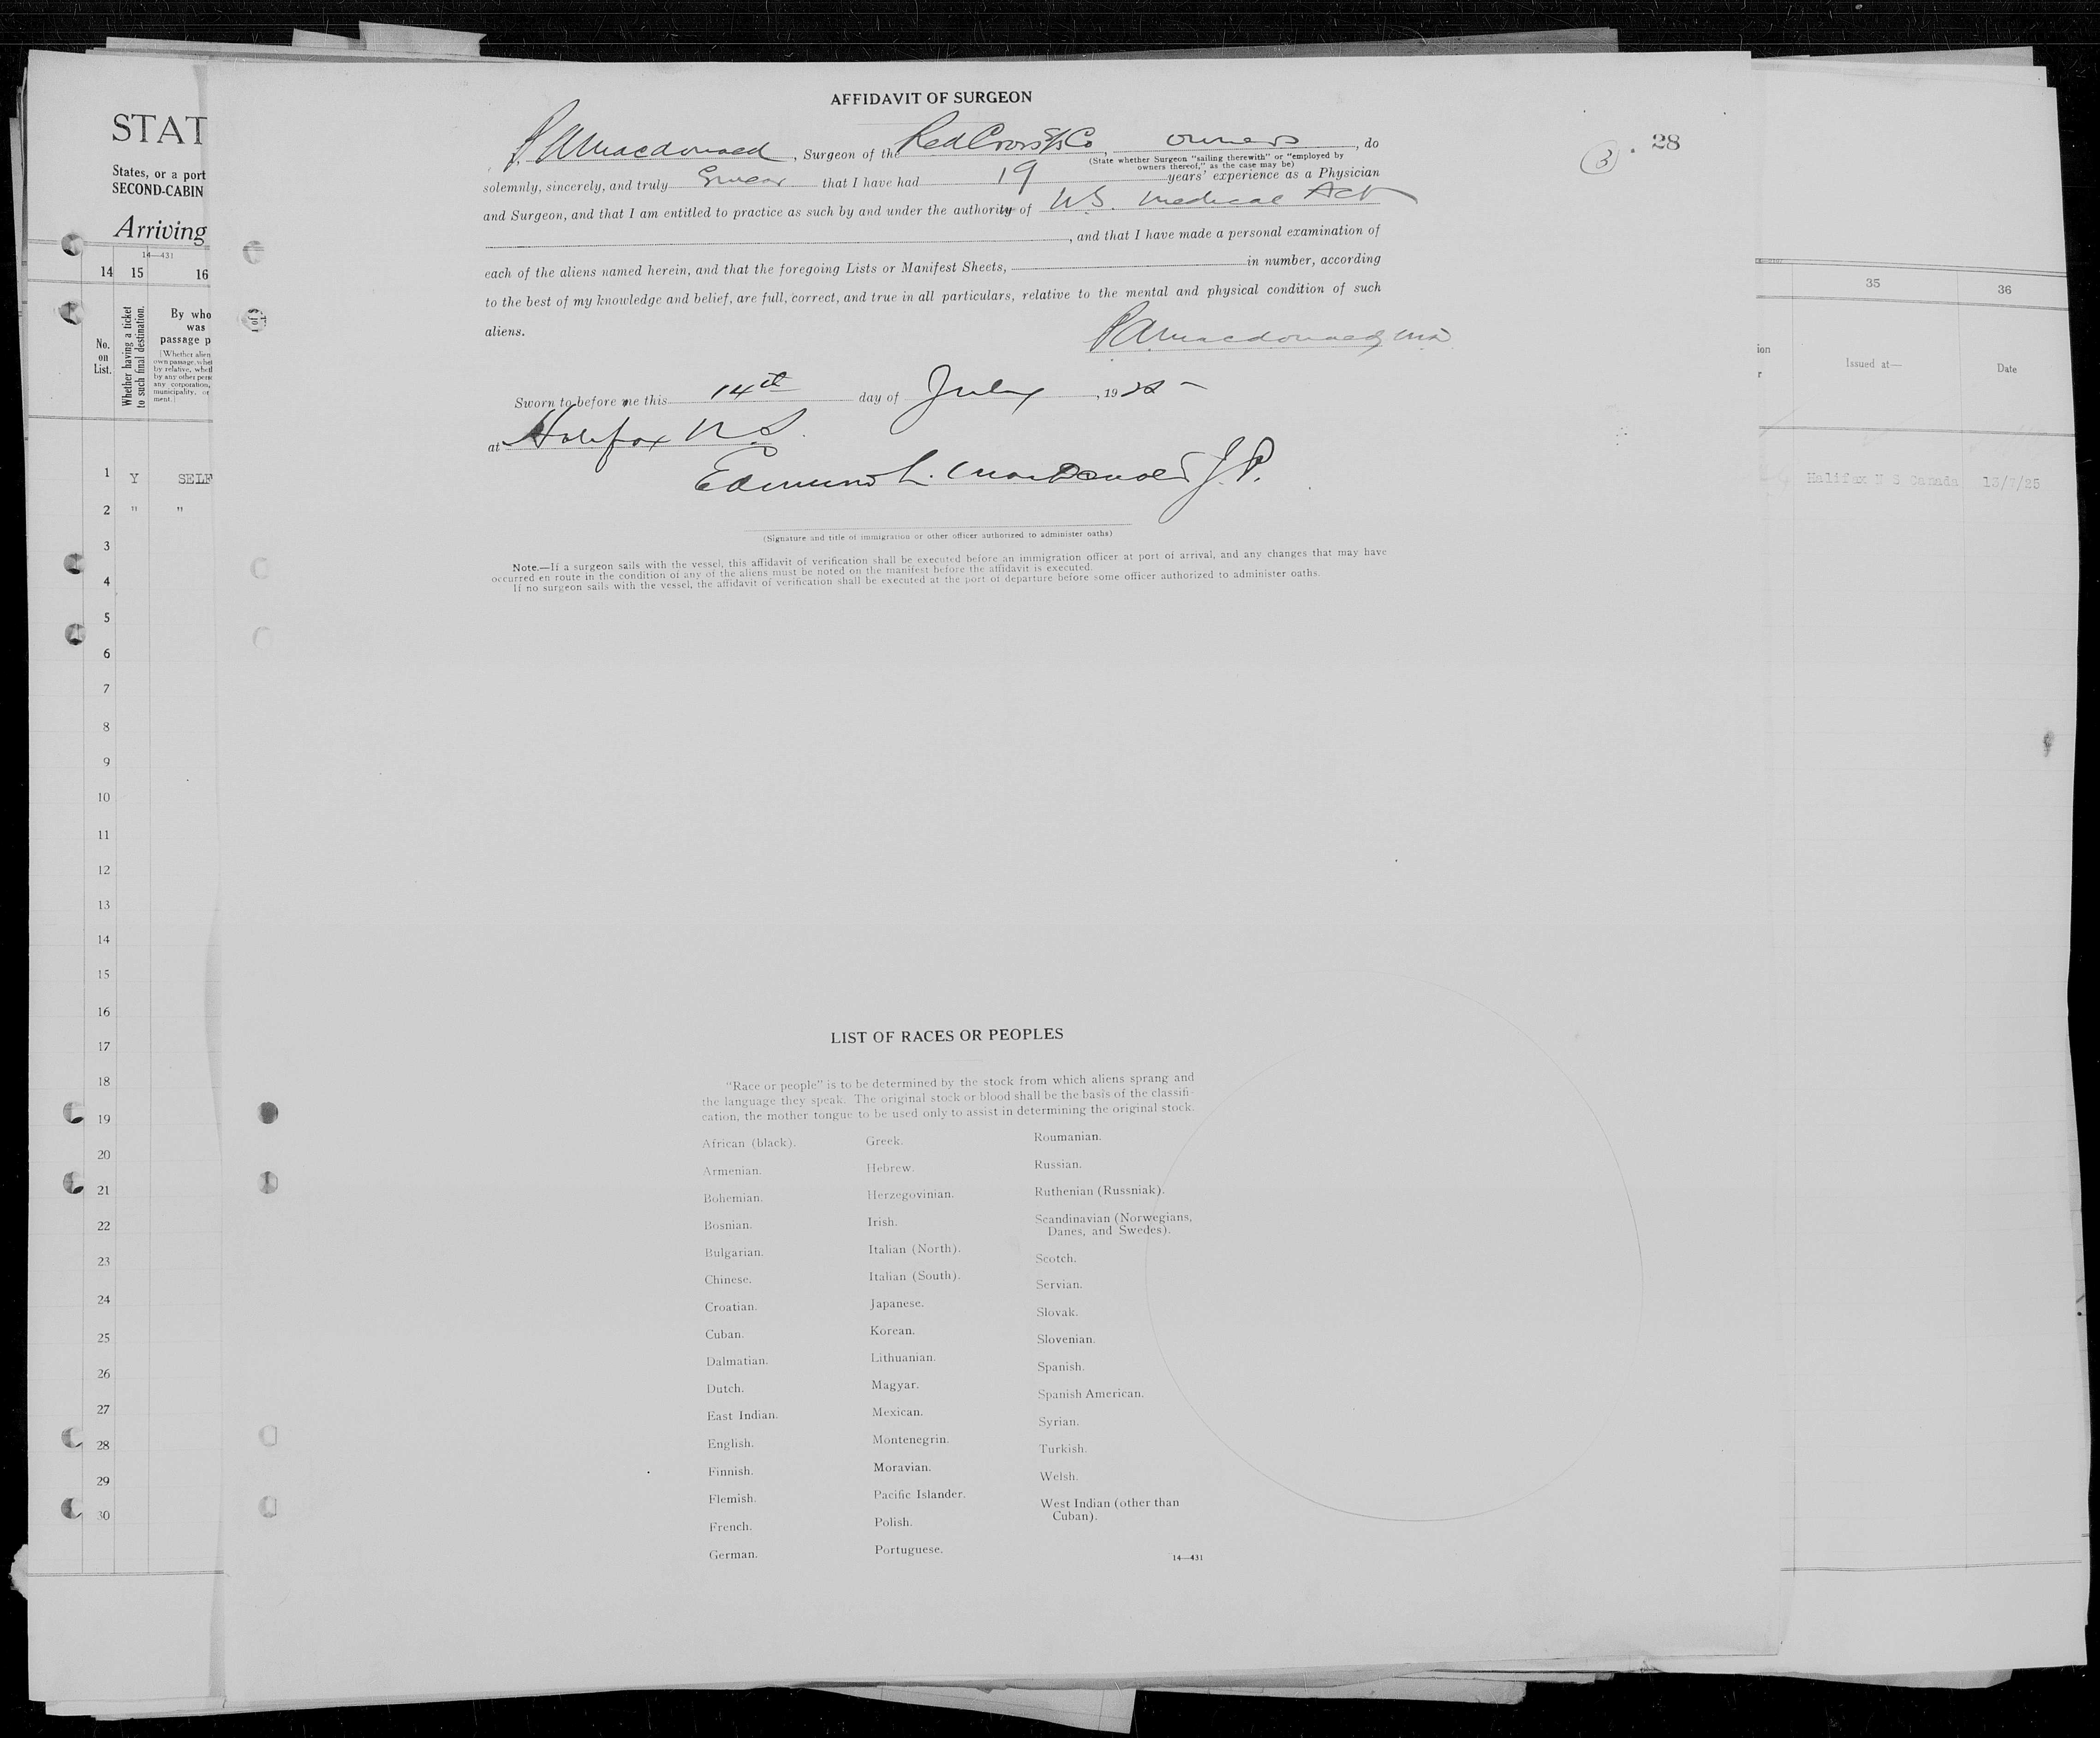 AFFIDAVIT OF SURGEON
I, P A Macdonald, Surgeon of the Red Cross SS Co, owners, do
(State whether Surgeon "sailing therewith" or "employed by
owners thereof," as the case may be)
solemnly, sincerely, and truly swear that I have had 19 years' experience as a Physician
and Surgeon, and that I am entitled to practice as such by and under the authority of N.S. Medical Act
, and that I have made a personal examination of
each of the aliens named herein, and that the foregoing Lists or Manifest Sheets, in number, according
to the best of my knowledge and belief, are full, correct, and true in all particulars, relative to the mental and physical condition of such
aliens.
P A Macdonald MD
Sworn to before me this 14th day of July, 1925
at Halifax N.S.
Edmund L. MacDonald J.P.
(Signature and title of immigration or other officer authorized to administer oaths)
Note.—If a surgeon sails with the vessel, this affidavit of verification shall be executed before an immigration officer at port of arrival, and any changes that may have
occurred en route in the condition of any of the aliens must be noted on the manifest before the affidavit is executed.
If no surgeon sails with the vessel, the affidavit of verification shall be executed at the port of departure before some officer authorized to administer oaths.
3
28
LIST OF RACES OR PEOPLES
"Race or people" is to be determined by the stock from which aliens sprang and
the language they speak. The original stock or blood shall be the basis of the classifi-
cation, the mother tongue to be used only to assist in determining the original stock.
African (black).
Armenian.
Bohemian.
Bosnian.
Bulgarian.
Chinese.
Croatian.
Cuban.
Dalmatian.
Dutch.
East Indian.
English.
Finnish.
Flemish.
French.
German.
Greek.
Hebrew.
Herzegovinian.
Irish.
Italian (North).
Italian (South).
Japanese.
Korean.
Lithuanian.
Magyar.
Mexican.
Montenegrin.
Moravian.
Pacific Islander.
Polish.
Portuguese.
Roumanian.
Russian.
Ruthenian (Russniak).
Scandinavian (Norwegians,
Danes, and Swedes).
Scotch.
Servian.
Slovak.
Slovenian.
Spanish.
Spanish American.
Syrian.
Turkish.
Welsh.
West Indian (other than
Cuban).
14—431
STAT
States, or a port
SECOND-CABIN
Arriving
14—431
14 15 16
No.
on
List.
Whether having a ticket
to such final destination.
By who
was
passage p
[Whether alien
own passage, whet
by relative, wheth
by any other pers
any corporation,
municipality, or
ment.]
1 Y SELF
2 " "
3
4
5
6
7
8
9
10
11
12
13
14
15
16
17
18
19
20
21
22
23
24
25
26
27
28
29
30
35 36
ion
r
Issued at— Date
Halifax N S Canada 13/7/25